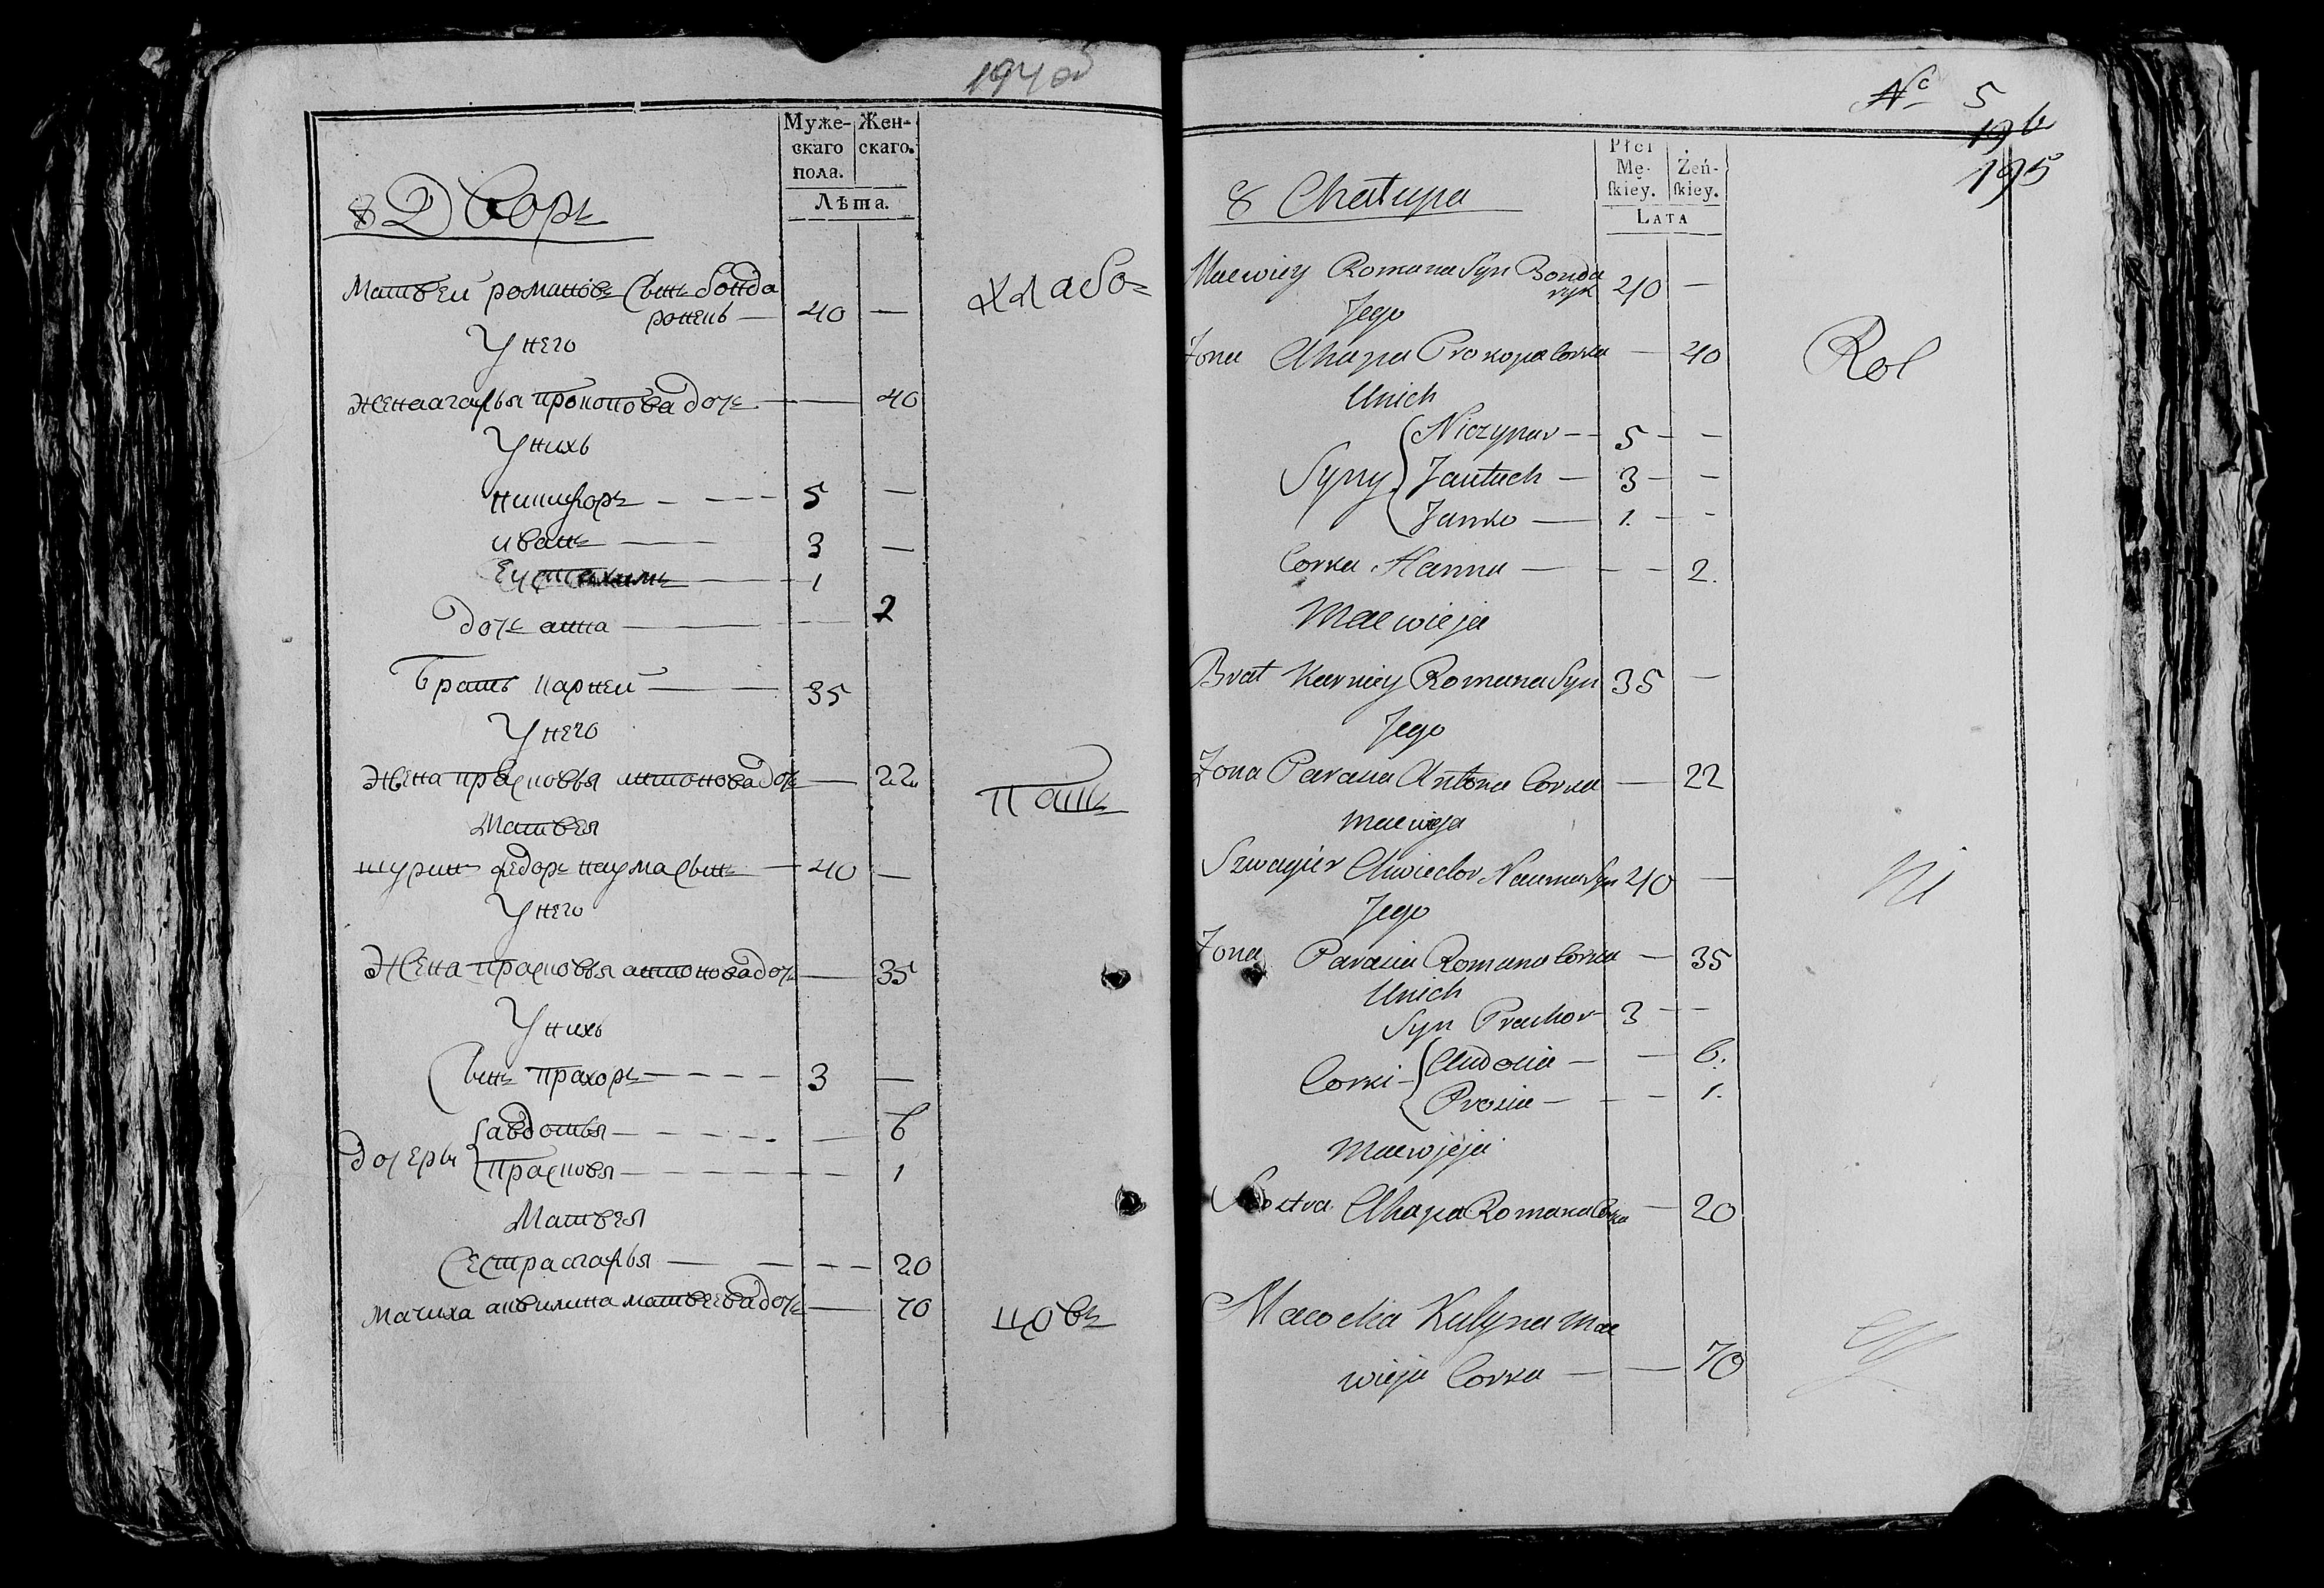 194 об
Муже- Жен-
скаго скаго.
пола.
Лѣта.
8 Дворъ
Матвей романовъ сынъ бонда
ронень — 40 — хлабо=
У него
жена агафья прокопова дочь — 40
У нихъ
никифоръ — 5 —
иванъ — 3 —
1
дочь анна — 2
братъ карней — 35
У него
жена прасковья антонова дочь — 22
пашъ
Матвея
шуринъ федоръ наума сынъ — 40 —
У него
жена прасковья антонова дочь — 35
У нихъ
сынъ прахоръ — 3 —
дочеры авдотья — 6
прасковя — 1
Матвея
сестра агафья — 20
мачиха аквилина матвеева дочь — 70
цовъ
№ 5
196
195
Płci
Mę- Żeń-
ſkiey. ſkiey.
LATA
8 Chałupa
Macwiey Romana Syn Bonda
ryk 40 —
Jego
Żona Ahapa Prokopa Corka — 40
Rol
Unich
Syny Niczypar — 5 —
Jautuch — 3 —
Janko — 1. —
Corka Hanna — 2.
Macwieja
Brat Karniey Romana Syn 35 —
Jego
Żona Parasia Antona Corka — 22
Macwieja
Szwagier Chwiedor Nauma Syn 40 —
ni
Jego
Żona Parasia Romana Corka — 35
Unich
Syn Prachor 3 —
Corki Audocia — 6.
Prosia — 1.
Macwjeja
Siostra Ahapa Romana Corka — 20
Macocha Kulyna Mac
wieja Corka — 70
cy